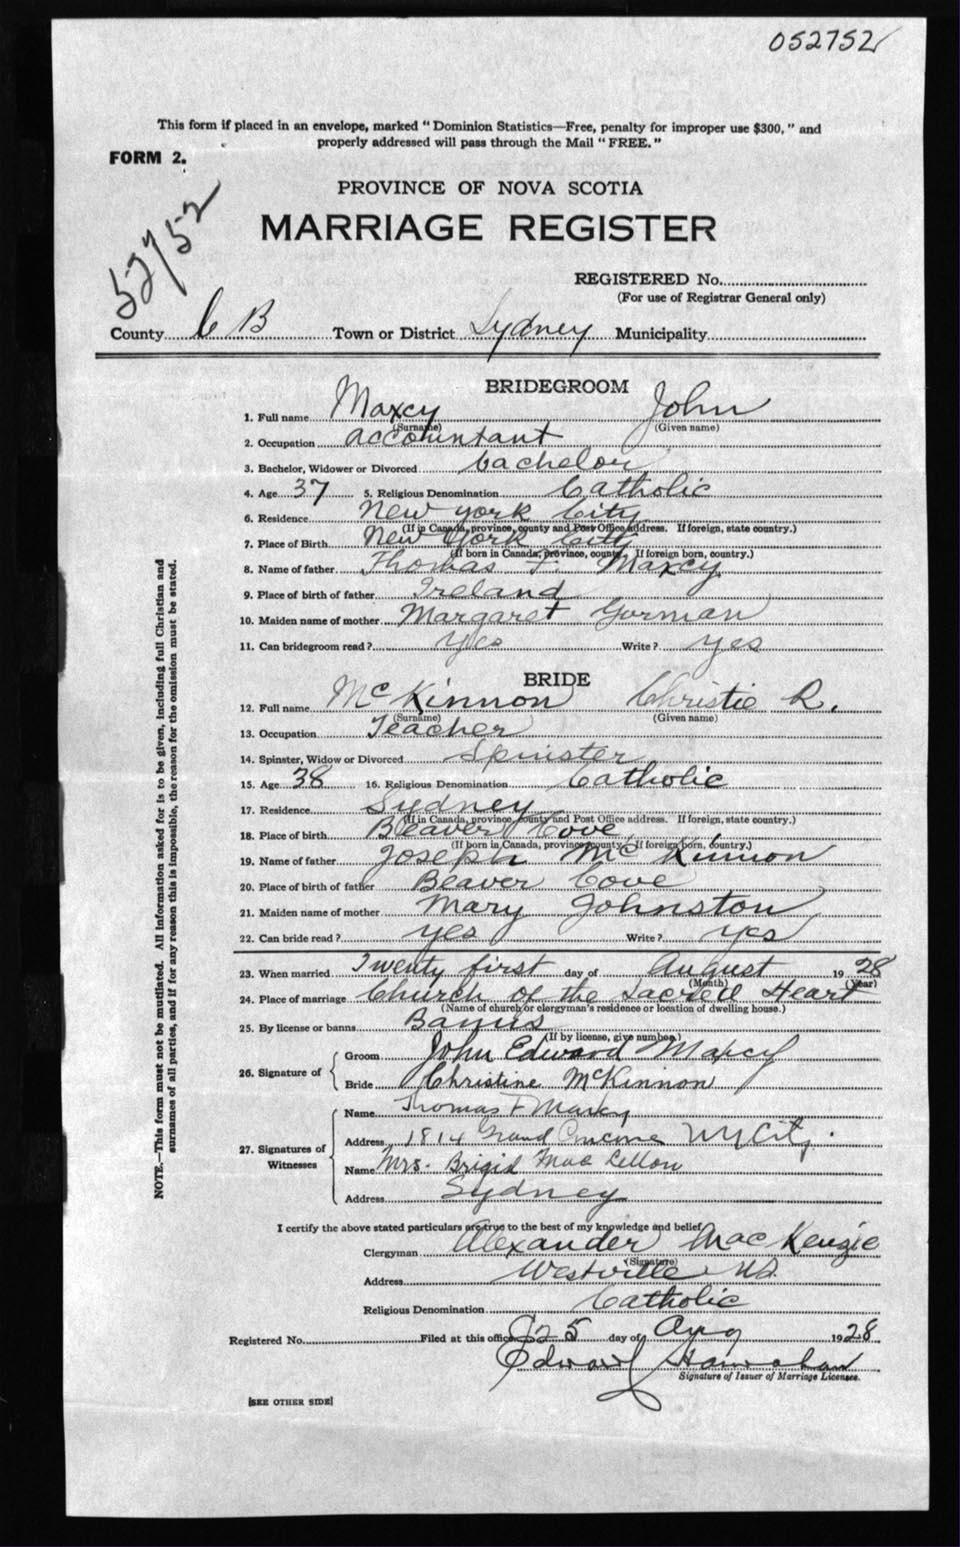 052752
This form if placed in an envelope, marked "Dominion Statistics—Free, penalty for improper use $300," and
properly addressed will pass through the Mail "FREE."
FORM 2.
PROVINCE OF NOVA SCOTIA
MARRIAGE REGISTER
52752
REGISTERED No.
(For use of Registrar General only)
County C B Town or District Sydney Municipality
BRIDEGROOM
1. Full name Maxcy John
(Surname) (Given name)
2. Occupation accountant
3. Bachelor, Widower or Divorced bachelor
4. Age 37 5. Religious Denomination Catholic
6. Residence New York City
(If in Canada, province, county and Post Office address. If foreign, state country.)
7. Place of Birth New York City
(If born in Canada, province, county. If foreign born, country.)
8. Name of father Thomas F. Maxcy
9. Place of birth of father Ireland
10. Maiden name of mother Margaret Gorman
11. Can bridegroom read? Yes Write? yes
BRIDE
12. Full name McKinnon Christie R.
(Surname) (Given name)
13. Occupation Teacher
14. Spinster, Widow or Divorced Spinster
15. Age 38 16. Religious Denomination Catholic
17. Residence Sydney
(If in Canada, province, county and Post Office address. If foreign, state country.)
18. Place of birth Beaver Cove
(If born in Canada, province, county. If foreign born, country.)
19. Name of father Joseph McKinnon
20. Place of birth of father Beaver Cove
21. Maiden name of mother Mary Johnston
22. Can bride read? yes Write? yes
23. When married Twenty first day of August 1928
(Month) (Year)
24. Place of marriage Church of the Sacred Heart
(Name of church or clergyman's residence or location of dwelling house.)
25. By license or banns Banns
(If by license, give number.)
26. Signature of
Groom John Edward Maxcy
Bride Christine McKinnon
27. Signatures of Witnesses
Name Thomas F Maxcy
Address 1814 Grand NY City.
Name Mrs. Brigid Mac Lellon
Address Sydney
I certify the above stated particulars are true to the best of my knowledge and belief.
Clergyman Alexander MacKenzie
(Signature)
Address Westville N.S.
Religious Denomination Catholic
Registered No. Filed at this office 25 day of Aug 1928
Edward Hanrahan
Signature of Issuer of Marriage Licenses.
[SEE OTHER SIDE]
NOTE.—This form must not be mutilated. All information asked for is to be given, including full Christian and
surnames of all parties, and if for any reason this is impossible, the reason for the omission must be stated.